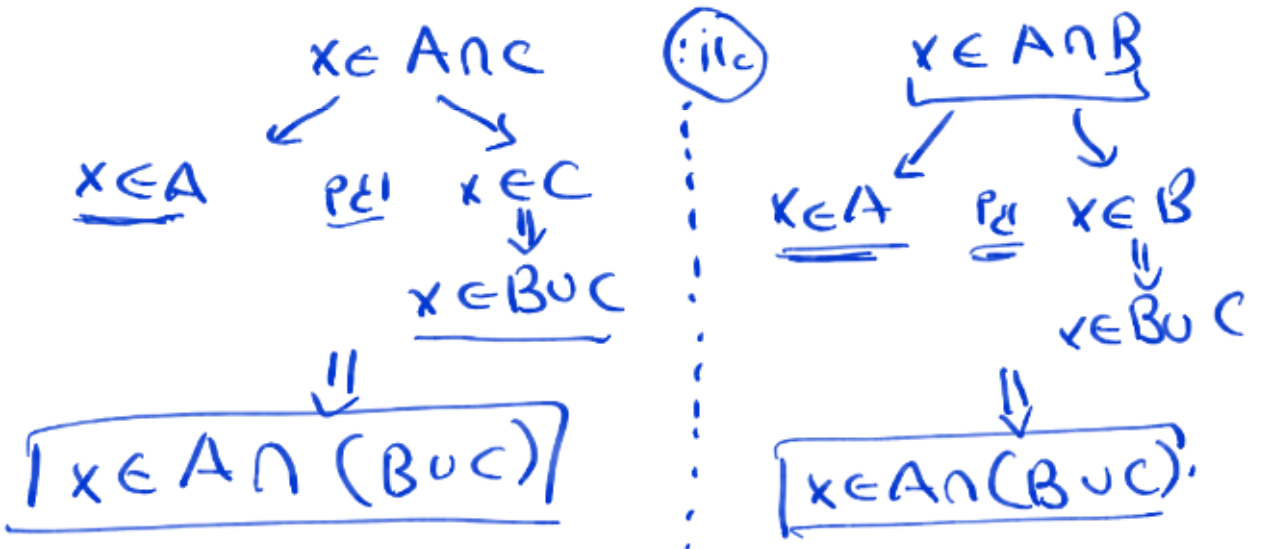 x ∈ A∩B
x∈A וגם x∈B
⇓
x∈B∪C
⇓
x∈A∩(B∪C).
או:
x∈ A∩C
x∈A וגם x∈C
⇓
x∈B∪C
⇓
x∈A∩(B∪C)